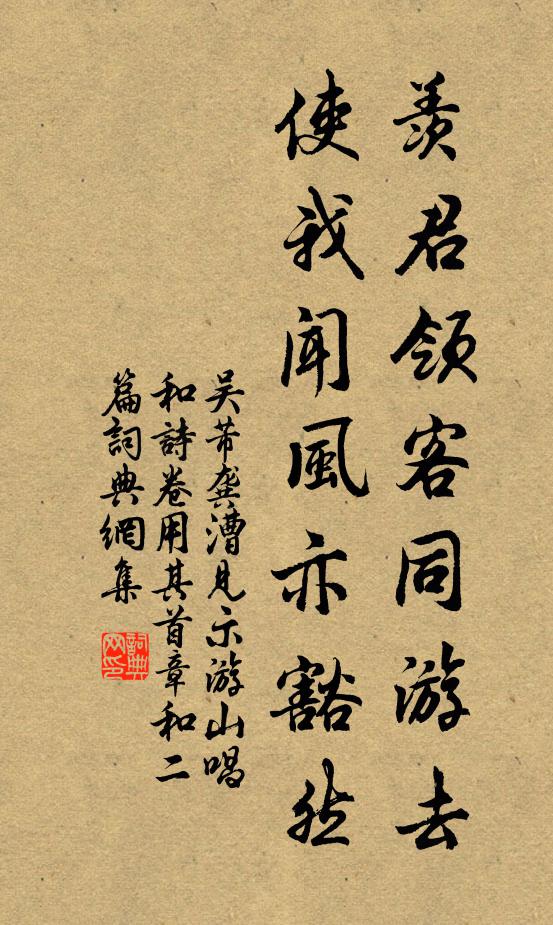 羨君領客同游去
使我聞風亦豁然
吴芾龔漕見示游山唱
和詩卷用其首章和二
篇詞典網集
詞典
网印